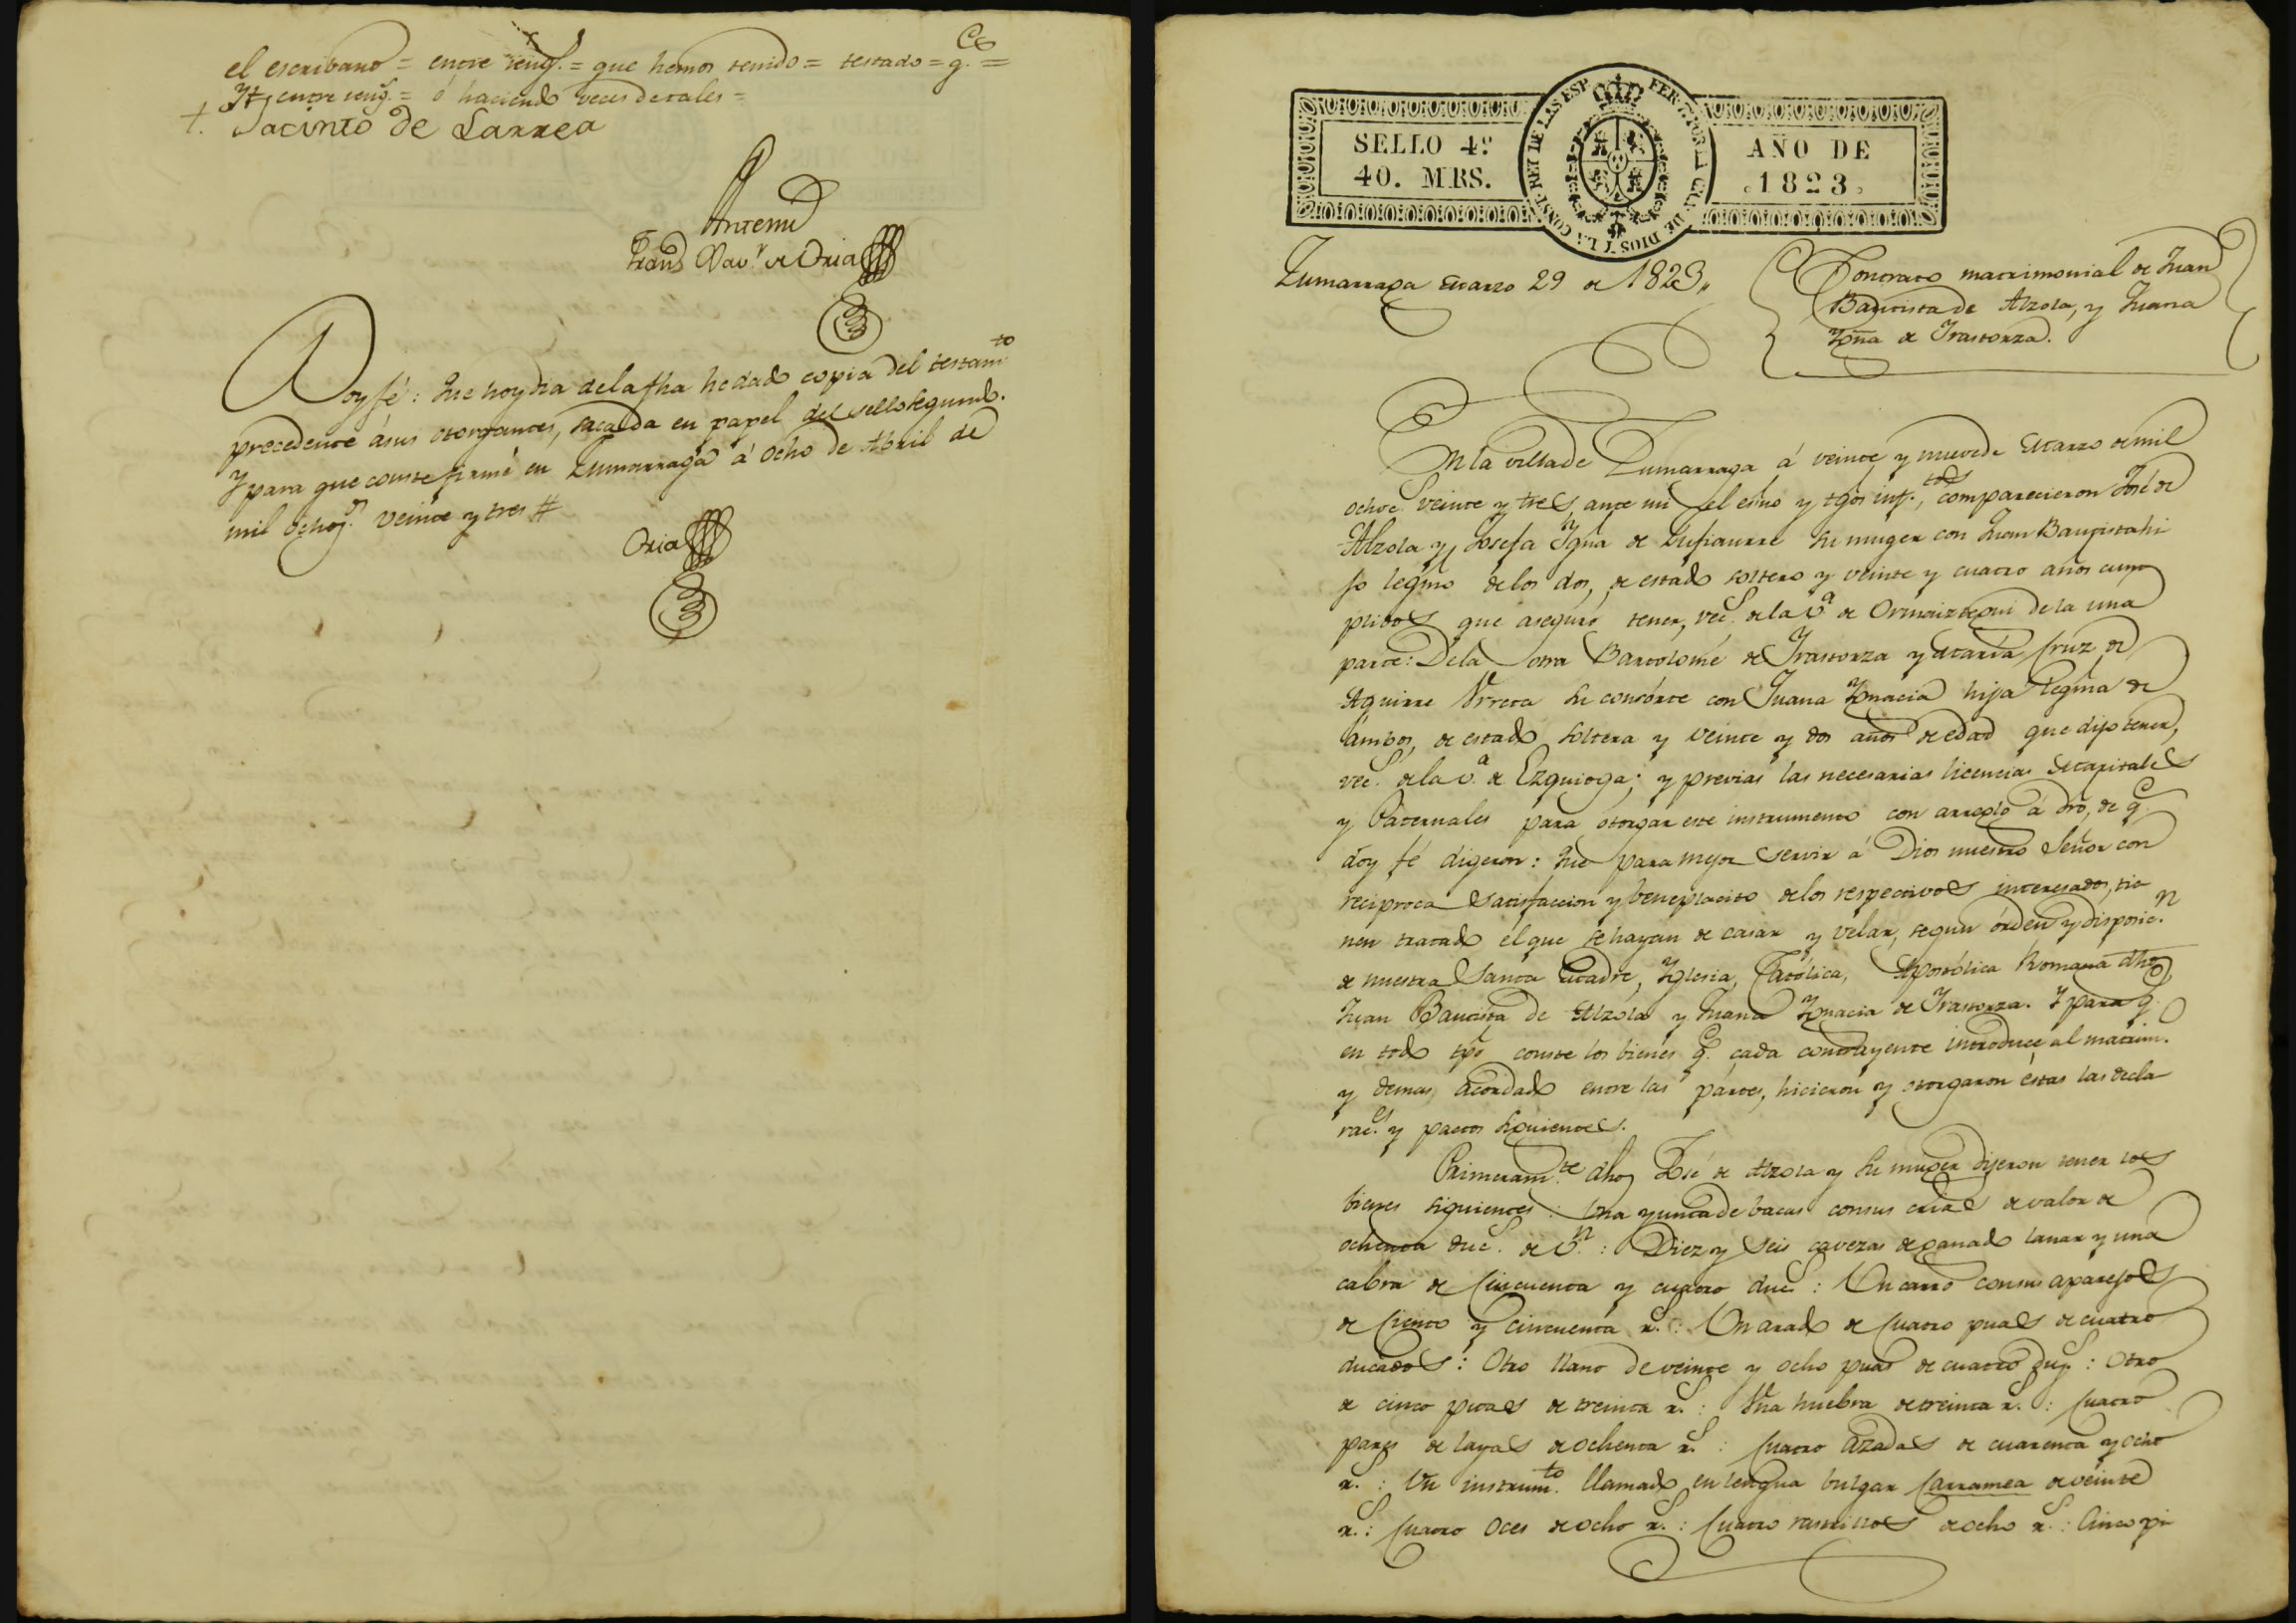 el escribano = entre reng.s = que hemos tenido = testado = q.e =
Yt entre reng.s = ó haciendo veces de tales =
+. Jacinto de Larrea
Antemi
Fran.co Xav.r de Oria
Doy fé: Que hoy dia de la fha he dado copia del testam.to
precedente á sus otorgantes, sacada en papel del sello segundo.
Y para que conste firmé en Zumarraga á ocho de Abril de
mil ochoc.s veinte y tres #
Oria
SELLO 4.º
40. MRS.
FER. 7.º POR LA GRA. DE DIOS Y LA CONST. REY DE LAS ESP.
AÑO DE
1823
Zumarraga Marzo 29 de 1823,,
Contrato matrimonial de Juan
Bautista de Alzola, y Juana
Ygna de Irastorza.
En la villa de Zumarraga á veinte y nueve de Marzo de mil
ochoc.s veinte y tres, ante mi el esno y tgos inf.tos, comparecieron José de
Alzola y Josefa Ygna de Lufiaurre su muger con Juan Bautista hi
jo legmo de los dos, de estado soltero y veinte y cuatro años cum
plidos que aseguró tener, vec.s de la v.a de Ormaiztegui de la una
parte: De la otra Bartolomé de Irastorza y Maria Cruz de
Aguirre Urreta su consorte con Juana Ygnacia hija legma de
ambos, de estado soltera y veinte y dos años de edad que dijo tener,
vec.s de la v.a de Ezquioga; y previas las necesarias licencias Maritales
y Paternales para otorgar este instrumento con arreglo á dro, de q.e
doy fé digeron: Que para mejor servir á Dios nuestro Señor con
reciproca satisfaccion y beneplacito de los respectivos interesados, tie
nen tratado el que se hayan de casar y velar, segun órden y disposic.n
de nuestra Santa Madre, Yglesia, Católica, Apostólica Romana dhos
Juan Bautista de Alzola y Juana Ygnacia de Irastorza. Y para q.e
en todo tpo conste los bienes q.e cada contrayente introduce al matrim.o
y demas acordado entre las partes, hicieron y otorgaron éstas las decla
rac.s y pactos siguientes.
Primeram.te dhos José de Alzola y su muger dijeron tener los
bienes siguientes: Una yunta de bacas con sus crias de valor de
ochenta duc.s de v.n: Diez y seis cavezas de ganado lanar y una
cabra de cincuenta y cuatro duc.s: Un carro con sus aparejos
de ciento y cincuenta r.s: Un arado de cuatro puas de cuatro
ducados: Otro llano de veinte y ocho puas de cuatro duc.s: Otro
de cinco puas de treinta r.s: Una nuebra de treinta r.s: Cuatro
pares de layas de ochenta r.s: Cuatro azadas de cuarenta y ocho
r.s: Un instrum.to llamado en lengua bulgar Carramea de veinte
r.s: Cuatro oces de ocho r.s: Cuatro rastrillos de ocho r.s: Cinco pi